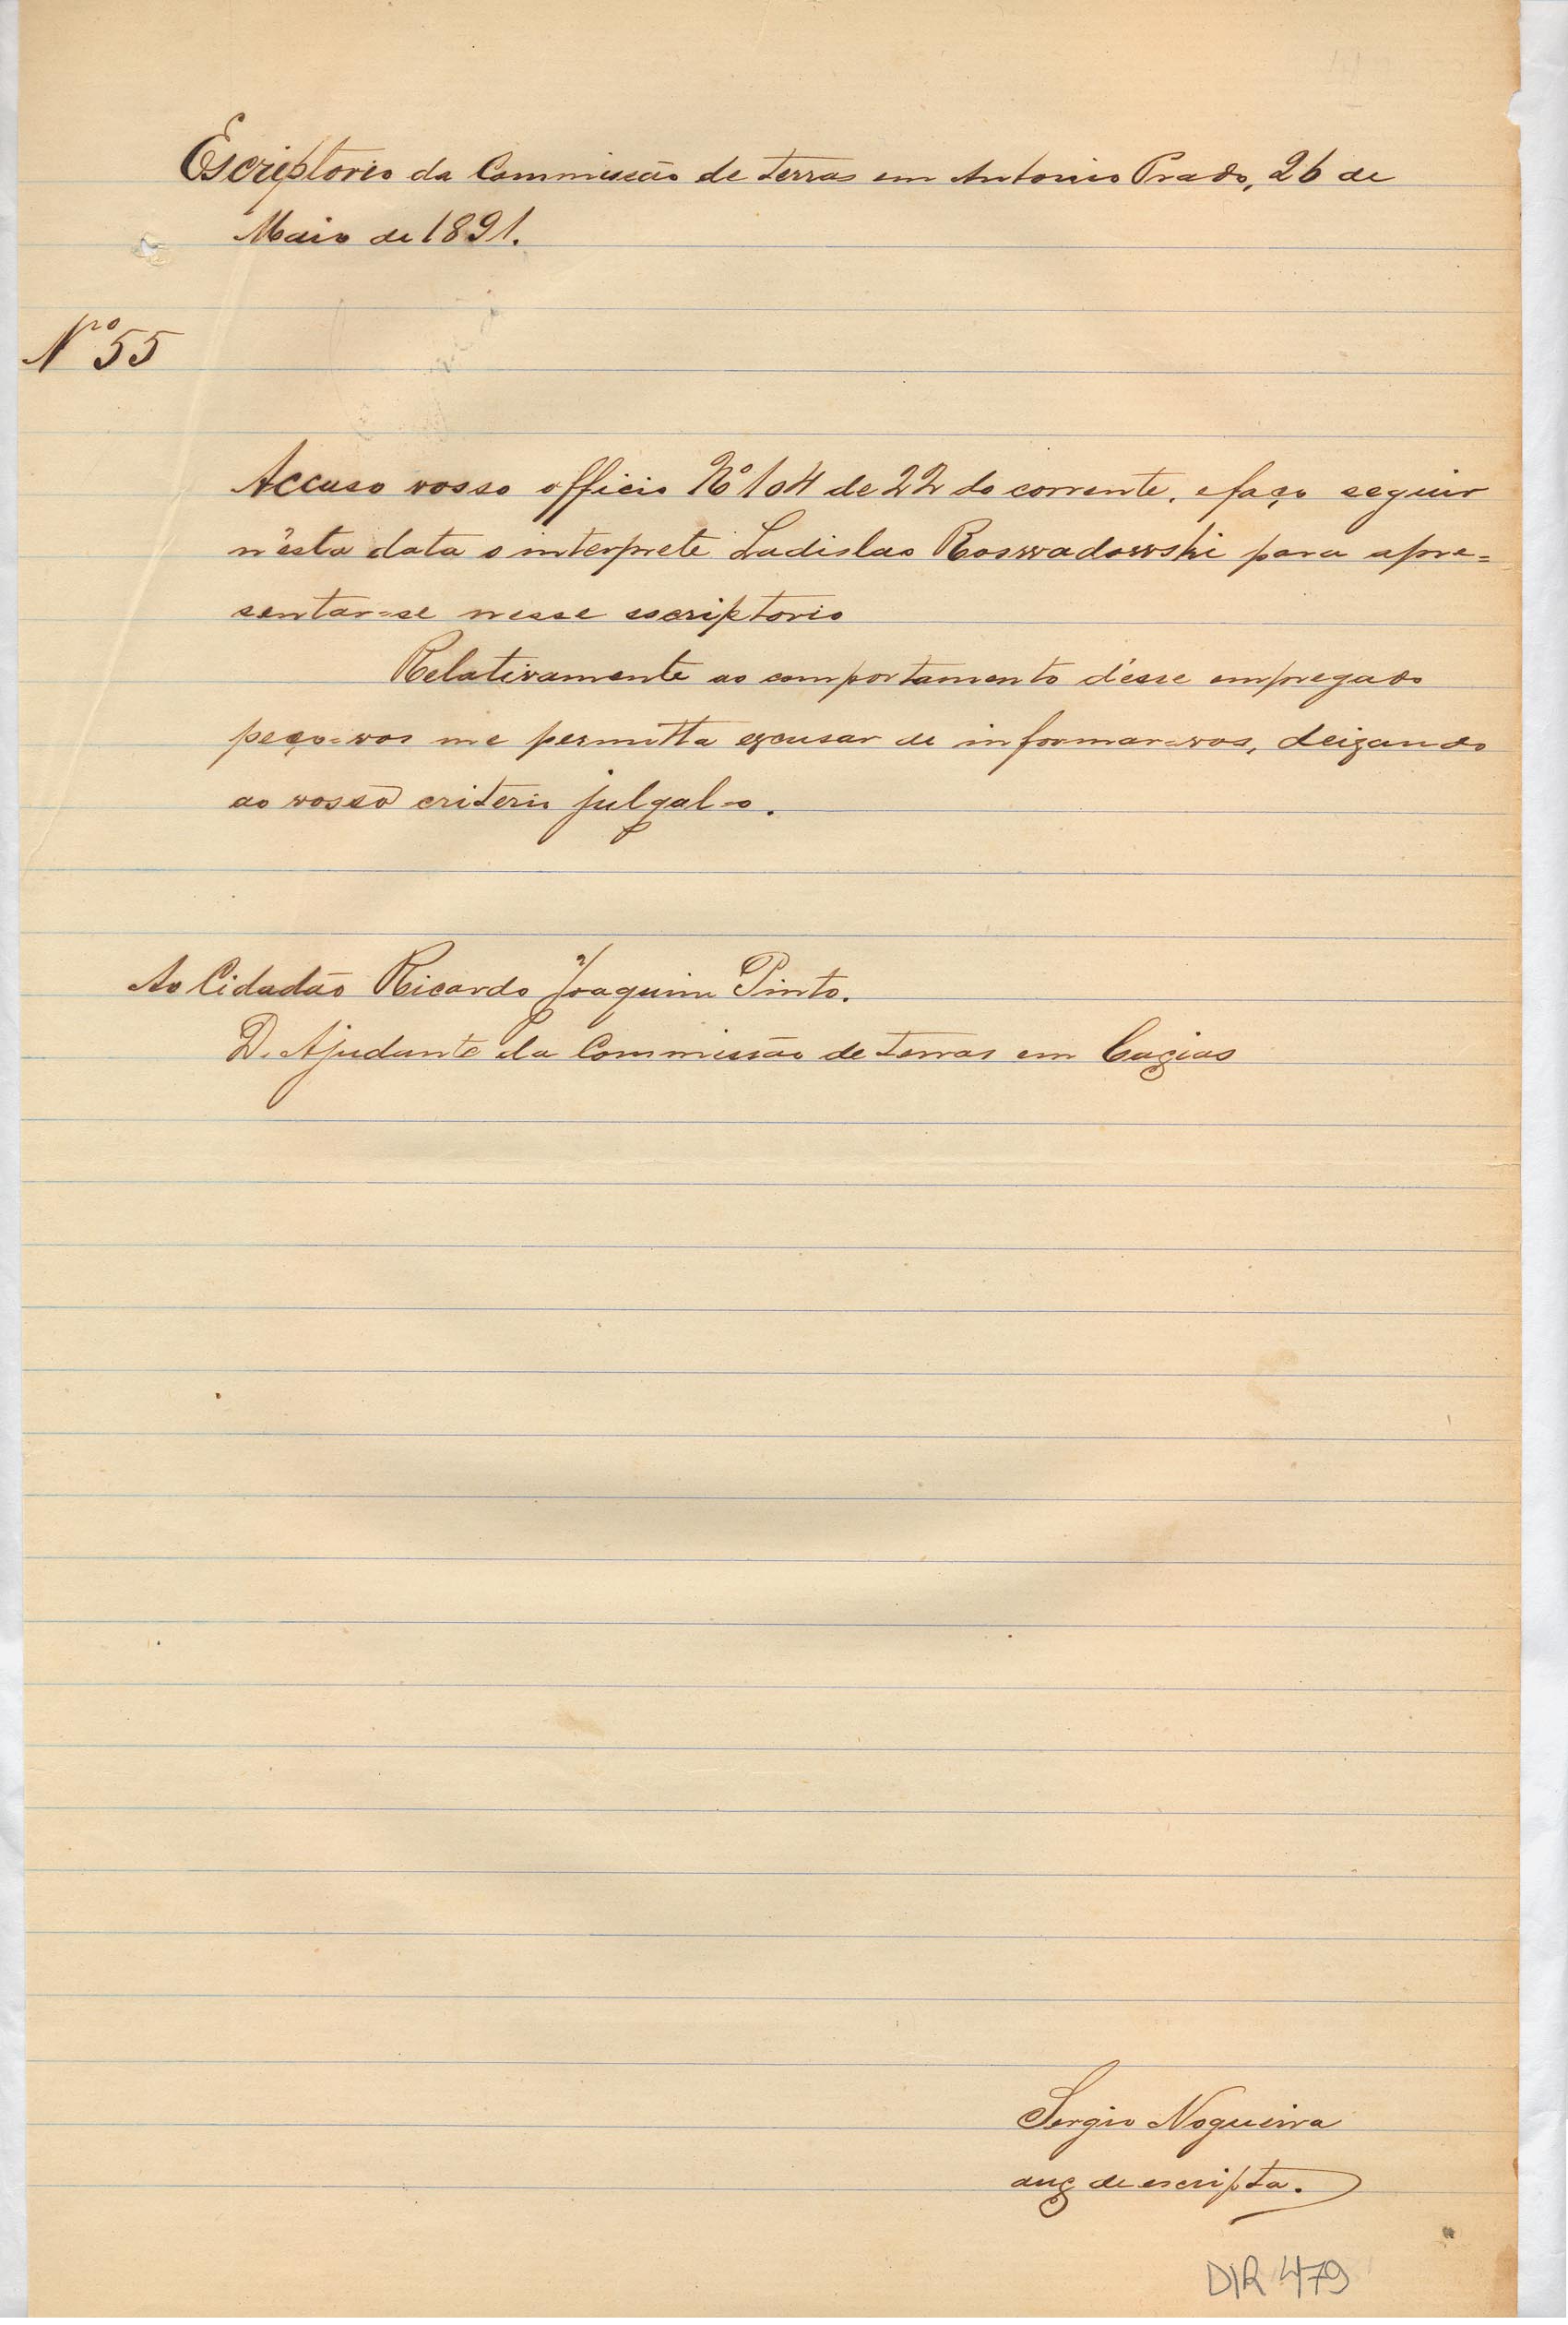 Escriptorio da Commissão de terras em Antonio Prado, 26 de
Maio de 1891.
Nº 55
Accuso vosso officio Nº 104 de 22 do corrente, e faço seguir
n'esta data o interprete Ladislao Roswadowski para apre=
sentar=se nesse escriptorio
Relativamente ao comportamento d'esse empregado
peço=vos me permitta excusar de informar=vos, deixando
ao vosso criterio julgal-o.
Ao Cidadão Ricardo Joaquim Pinto.
D. Ajudante da Commissão de terras em Caxias
Sergio Nogueira
aux de escripta.
DIR 479